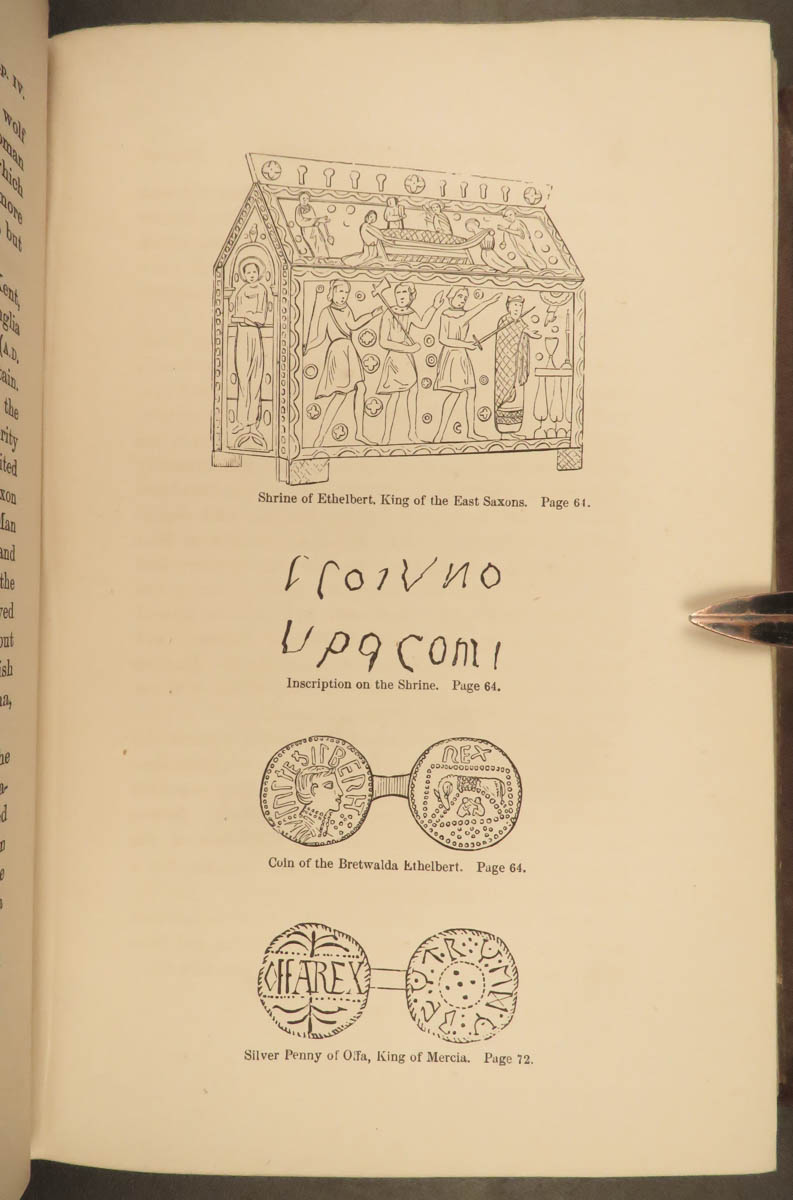 p. IV.
wolf
oman
which
more
but
Kent,
nglia
(A.D.
tain.
the
rity
ited
xon
Man
and
the
ved
out
ish
na,
he
a-
d
Shrine of Ethelbert, King of the East Saxons. Page 64.
Inscription on the Shrine. Page 64.
REX
Coin of the Bretwalda Ethelbert. Page 64.
OFFA REX
Silver Penny of Offa, King of Mercia. Page 72.